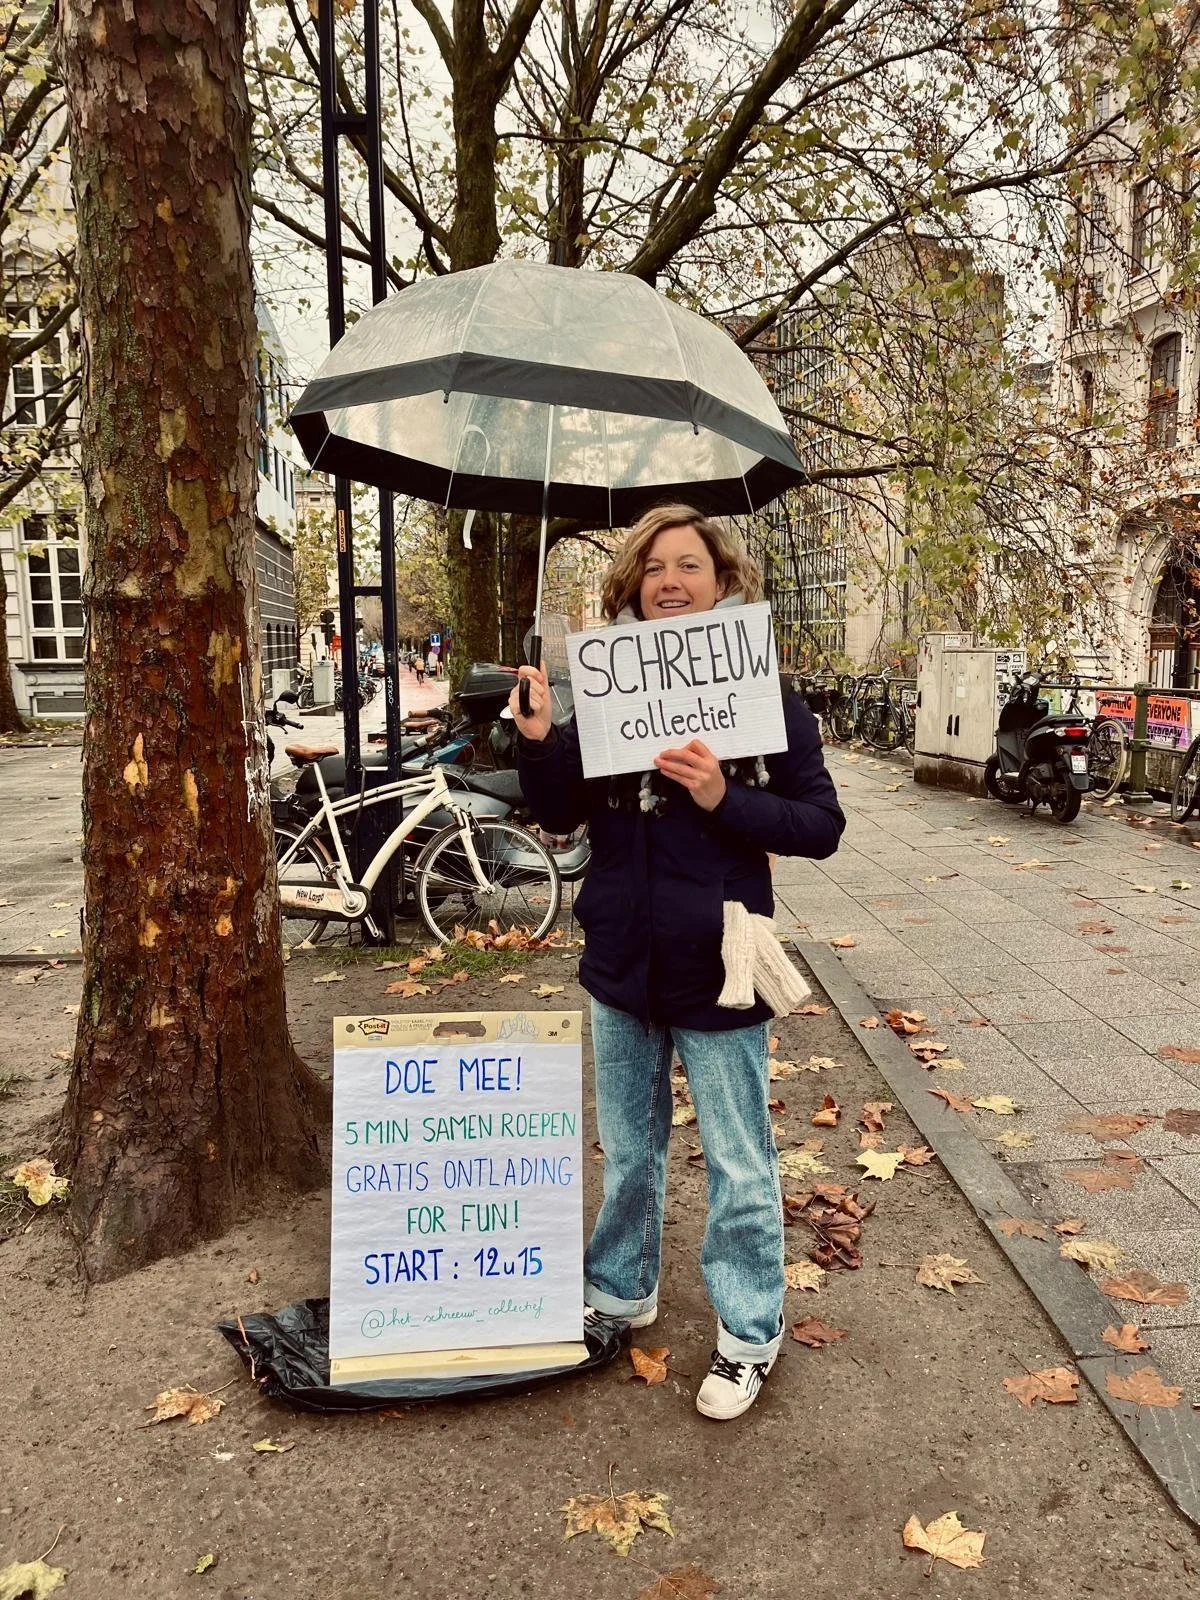 SCHREEUW
collectief
Post-it
3M
DOE MEE!
5 MIN SAMEN ROEPEN
GRATIS ONTLADING
FOR FUN!
START : 12u15
@het_schreeuw_collectief
New Largo
EVERYONE
EVERYBODY